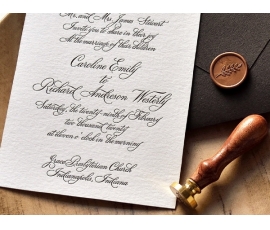 Mr. and Mrs. James Stewart
Invite you to share in their joy
At the marriage of their children
Caroline Emily
to
Richard Andreson Westerly
Saturday, the twenty-ninth of February
two thousand, twenty
at eleven o'clock in the morning
Grace Presbyterian Church
Indianapolis, Indiana